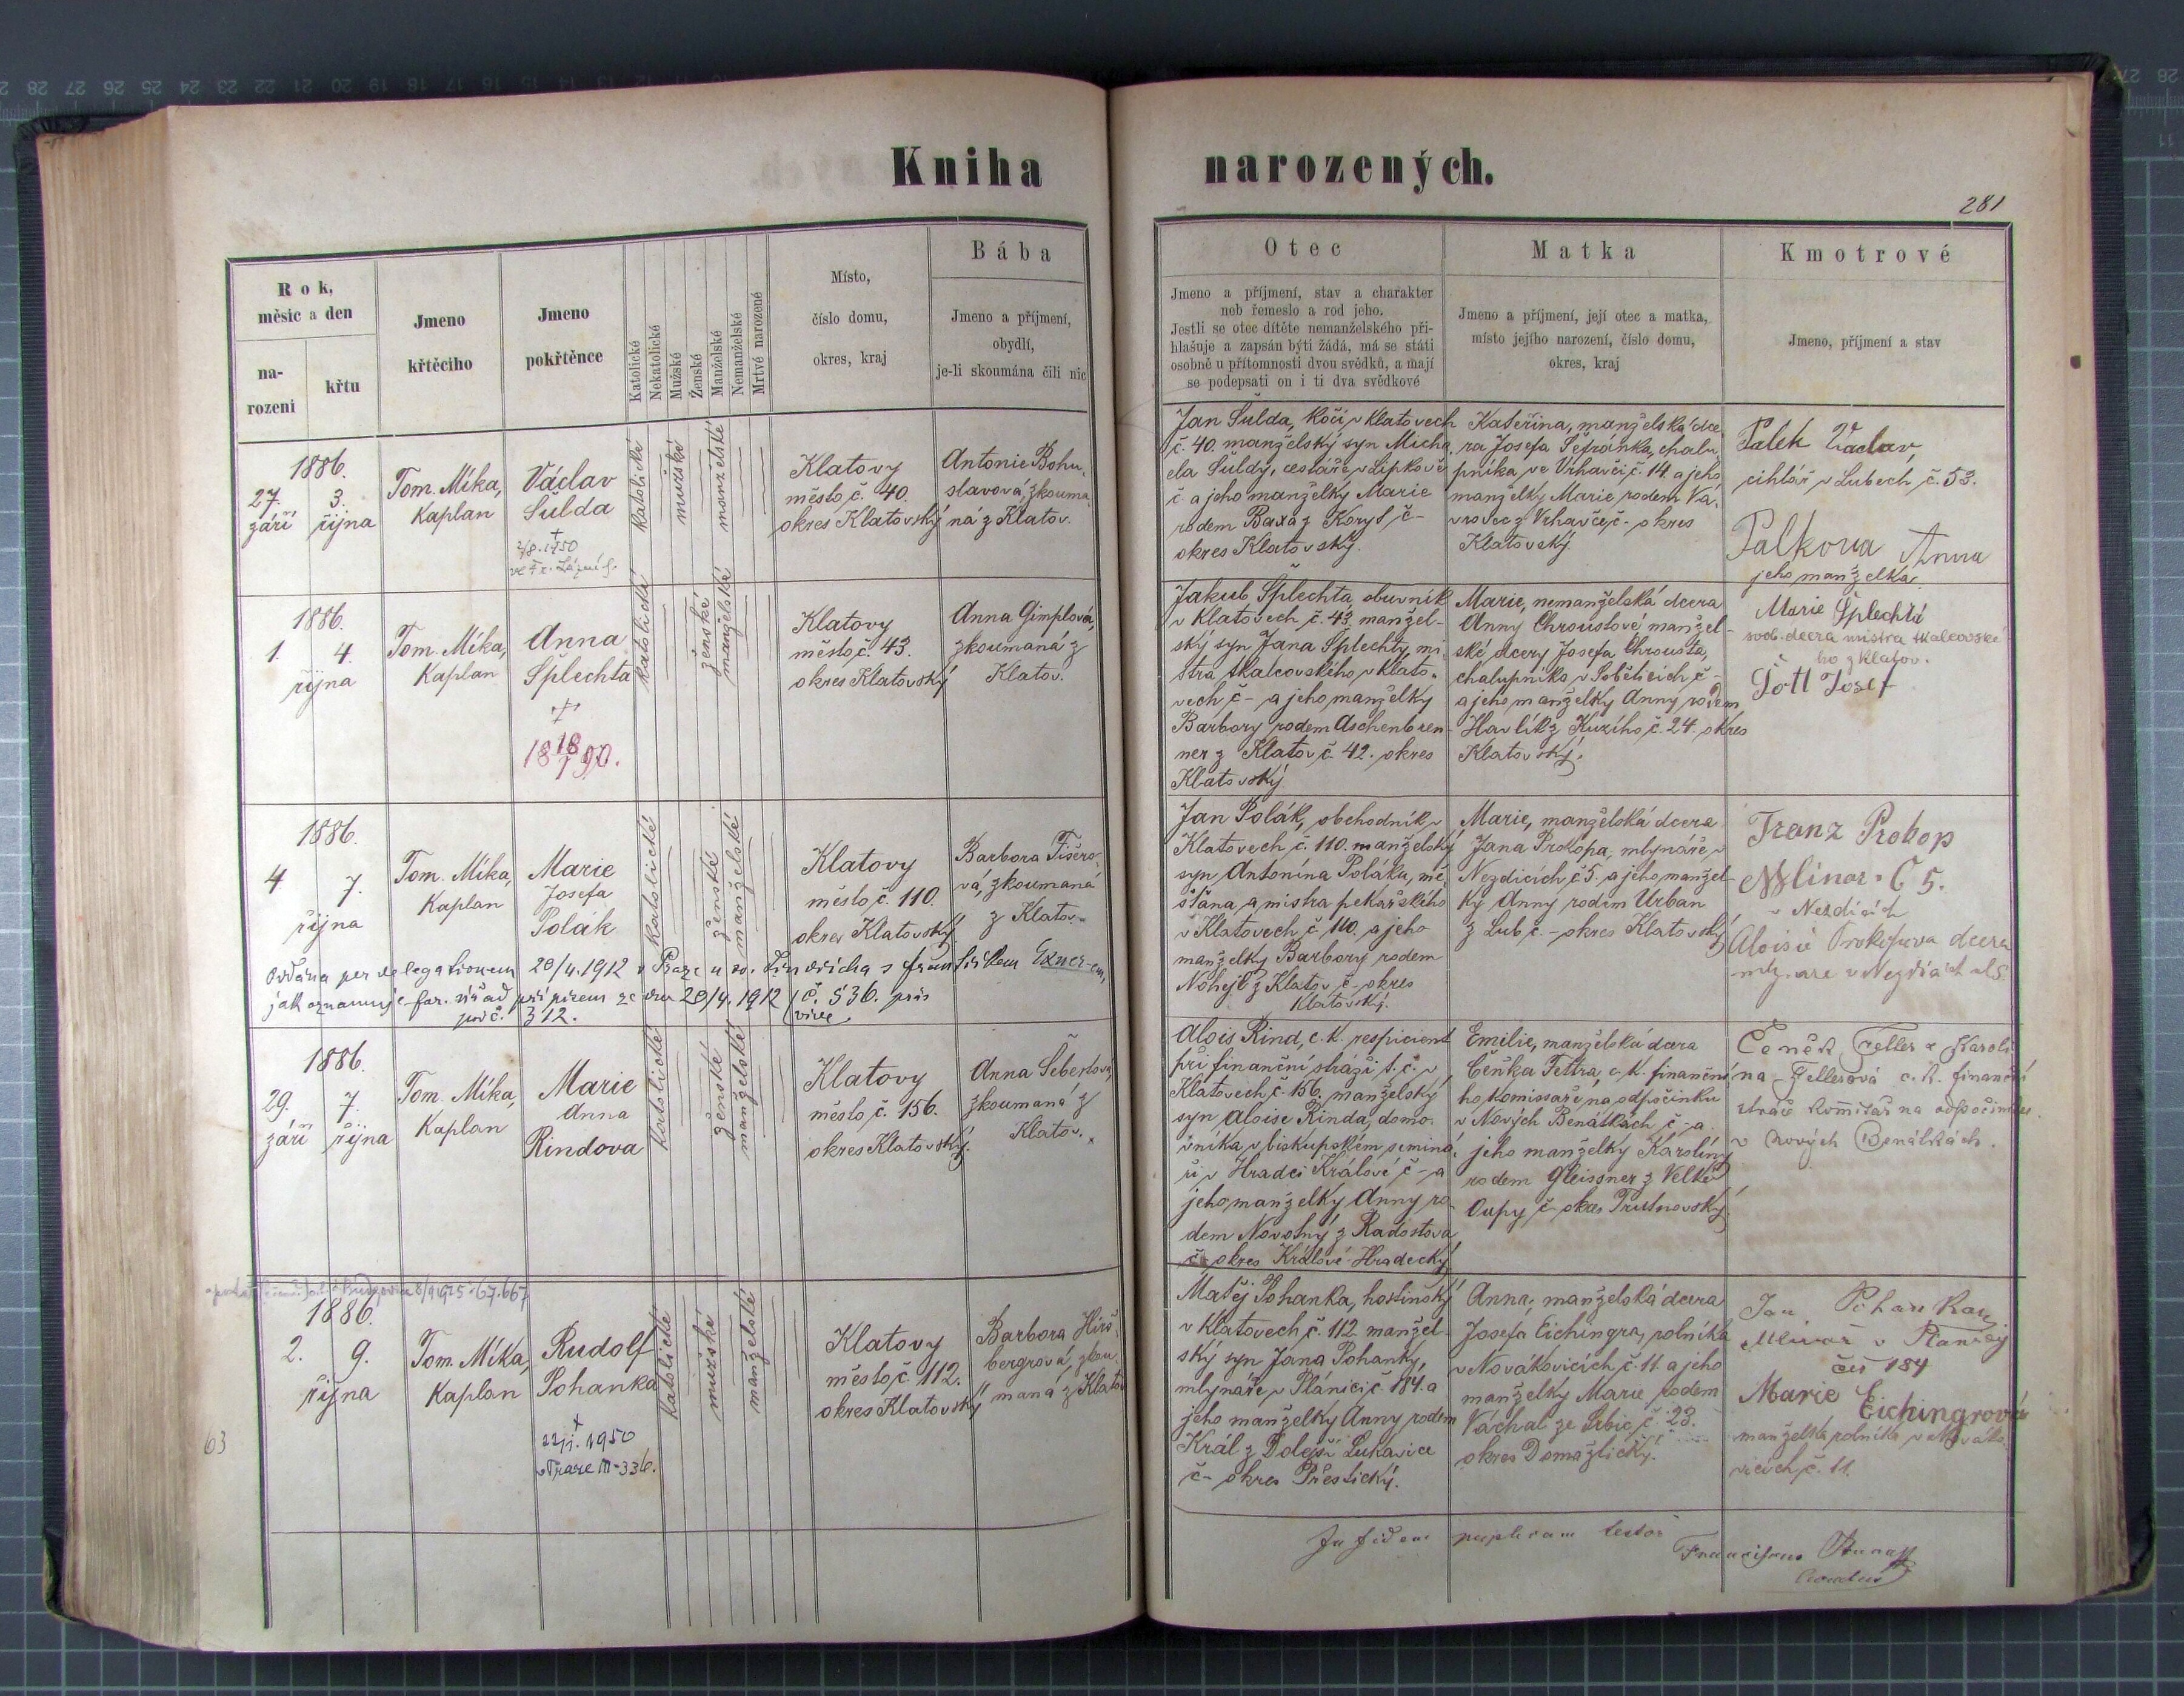 Kniha narozených.
281
Rok,
měsíc a den
na-
rozeni
křtu
Jmeno
křtěciho
Jmeno
pokřtěnce
Katolické
Nekatolické
Mužské
Ženské
Manželské
Nemanželské
Mrtvé narozené
Místo,
číslo domu,
okres, kraj
Bába
Jmeno a příjmení,
obydlí,
je-li skoumána čili nic
Otec
Jmeno a příjmení, stav a charakter
neb řemeslo a rod jeho.
Jestli se otec dítěte nemanželského při-
hlašuje a zapsán býti žádá, má se státi
osobně u přítomnosti dvou svědků, a mají
se podepsati on i ti dva svědkové
Matka
Jmeno a příjmení, její otec a matka,
místo jejího narození, číslo domu,
okres, kraj
Kmotrové
Jmeno, příjmení a stav
1886.
27. 3.
září října
Tom. Míka,
Kaplan
Václav
Šulda
2/8. 1950
katolické
mužské
manželské
Klatovy
město č. 40.
okres Klatovský
Antonie Bohu-
slavová, zkouma-
ná z Klatov.
Jan Šulda, kočí v Klatovech
č. 40. manželský syn Micha-
ela Šuldy, cestáře v Lipkově
č. a jeho manželky Marie
rodem Baxa z Koryt č-
okres Klatovský.
Kateřina, manželská dce-
ra Josefa Šefránka, chalu-
pníka ve Vrhavči č. 14. a jeho
manželky Marie rodem Vá-
vrovec z Vrhavče č- okres
Klatovský.
Palek Václav,
cihlář v Lubech č. 53.
Palkova Anna
jeho manželka.
1886.
1. 4.
října
Tom. Míka,
Kaplan
Anna
Šplechta
18 18/7 90.
katolické
ženské
manželské
Klatovy
město č. 43.
okres Klatovský
Anna Gimplová,
zkoumaná z
Klatov.
Jakub Šplechta, obuvník
v Klatovech č. 43, manžel-
ský syn Jana Šplechty, mi-
stra tkalcovského, v Klato-
vech č- a jeho manželky
Barbory rodem Aschenbren-
ner z Klatov č. 42. okres
Klatovský
Marie, nemanželská dcera
Anny Chroustové manžel-
ské dcery Josefa Chrousta,
chalupníka v Sobětících č-
a jeho manželky Anny rodem
Havlík z Kuzího, č. 24. okres
Klatovský.
Marie Šplechtá
svob. dcera mistra tkalcovské-
ho z Klatov.
Josef
1886.
4. 7.
října
Tom. Míka,
Kaplan
Marie
Josefa
Polák
katolické
ženské
manželské
Klatovy
město č. 110.
okres Klatovský
Barbora Fišero-
vá, zkoumaná
z Klatov.
Oddána per delegationem 20/4. 1912 v Praze u sv. Jindřicha s Exner-em,
jak oznamuje far. úřad přípisem ze dne 20/4. 1912 č. 536.
pod č. 312.
Jan Polák, obchodník v
Klatovech, č. 110. manželský
syn Antonína Poláku, mě-
šťana, a mistra pekařského
v Klatovech č 110. a jeho
manželky Barbory rodem
Nohejl z Klatov č- okres
Klatovský.
Marie, manželská dcera
Jana Prokopa, mlynáře v
Nezdicích č 5. a jeho manžel-
ky Anny rodem Urban
z Lub č.- okres Klatovský
Franz Prokop
Mlinař Č 5.
v Nezdicích
Aloisie Prokopova dcera
1886.
29. 7.
září října
Tom. Míka,
Kaplan
Marie
Anna
Rindova
katolické
ženské
manželské
Klatovy
město č. 156.
okres Klatovský.
Anna Šebertova,
zkoumaná z
Klatov.
Alois Rind, c. k. respicient
při finanční stráži t. č. v
Klatovech č. 156. manželský
syn Aloise Rinda, domo-
vníka, v biskupském seminá-
ři v Hradci Králové č- a
jeho manželky Anny ro-
dem Novotný z Radostova
č- okres Králové Hradecký
Emilie, manželská dcera
Čeňka Fettra, c. k. finanční-
ho komissaře na odpočinku
v Nových Benátkách č- a
jeho manželky Karoliny
rodem Gleissner z Velké
Oupy č- okres Trutnovský
Čeněk Feller a Karoli-
na Fellerová c. k. finanční
stráže komisař na odpočinku
v Nových Benátkách.
1886.
2. 9.
října
Tom. Míka,
Kaplan
Rudolf
Pohanka
1950
v Praze III-336.
katolické
mužské
manželské
Klatovy
město č. 112.
okres Klatovský
Barbora Hirš-
bergrová, zkou-
maná z Klatov
63
Matěj Pohanka, hostinský
v Klatovech, č. 112 manžel-
ský syn Jana Pohanky,
mlynáře v Plánici č. 184. a
jeho manželky Anny rodem
Král z Dolejší Lukavice
č- okres Přeštický.
Anna, manželská dcera
Josefa Eichingra, rolníka
v Novákovicích č. 11. a jeho
manželky Marie rodem
Váchal ze Srbic, č. 23.
okres Domažlický.
Jan Pohanka
Mlinař v Planici
čis 184
Marie Eichingrová
manželka rolníka v Nováko-
vicích č. 11.
In fidem testor